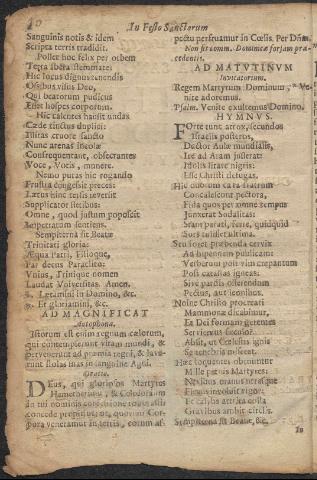 In Festo Sanctorum
Sanguinis notis & idem
Scripta terris tradidit.
Pollet hoc felix per orbem
Terra Ibera stemmate:
Hic locus dignus tenendis
Ossibus visus Deo,
Qui beatorum pudicus
Esset hospes corporum.
Hic calentes hausit undas
Cæde tinctus duplici:
Illitas cruore sancto
Nunc arenas incolæ
Confrequentant, obsecrantes
Voce, Votis, munere.
Nemo puras hic rogando
Frustra congessit preces:
Lætus hinc tersis revertit
Supplicator fletibus:
Omne, quod justum poposcit
Impetratum sentiens.
Sempiterna sit Beatæ
Trinitati gloria:
Æqua Patri, Filioque,
Par decus Paraclito:
Unius, Trinique nomen
Laudat Vniversitas. Amen.
℣. Lætamini in Domino, &c.
℟. Et gloriamini, &c.
AD MAGNIFICAT
Antiphona.
Istorum est enim regnum cælorum,
qui contempserunt vitam mundi, &
pervenerunt ad præmia regni, & lave-
runt stolas suas in sanguine Agni.
Oratio.
DEus, qui gloriosos Martyres
Hemeterium, & Celedonium
in tui nominis confessione roborasti:
concede propitius, ut, quorum Cor-
pora veneramur in terris, eorum as-
pectu perfruamur in Cœlis. Per Dñm.
Non fit comm. Dominicæ forsan præ-
cedentis.
AD MATUTINUM
Invitatorium.
Regem Martyrum Dominum, * Ve-
nite adoremus.
Psalm. Venite exultemus Domino.
HYMNUS.
FOrte tunc atrox, secundos
Israelis posteros,
Ductor Aulæ mundialis,
Ire ad Aram jusserat:
Idolis litare nigris:
Esse Christi defugas.
Hic duorum cara fratrum
Concalescunt pectora,
Fida quos per omne tempus
Junxerat Sodalitas:
Stant parati, ferre, quidquid
Sors tulisset ultima.
Seu foret præbenda cervix
Ad bipennem publicam
Verberum post vim crepantum
Post catastas igneas:
Sive pardis offerendum
Pectus, aut leonibus.
Nosne Christo procreati
Mammonæ dicabimur,
Et Dei formam gerentes
Serviemus sæculo?
Absit, ut Cœlestis ignis
Se tenebris misceat.
Hæc loquentes obruuntur
Mille pœnis Martyres:
Nexibus manus utrasque
Flexus involvit rigor:
Et calybs attrita colla
Gravibus ambit circlis.
Sempiterna sit Beatæ, &c.
In